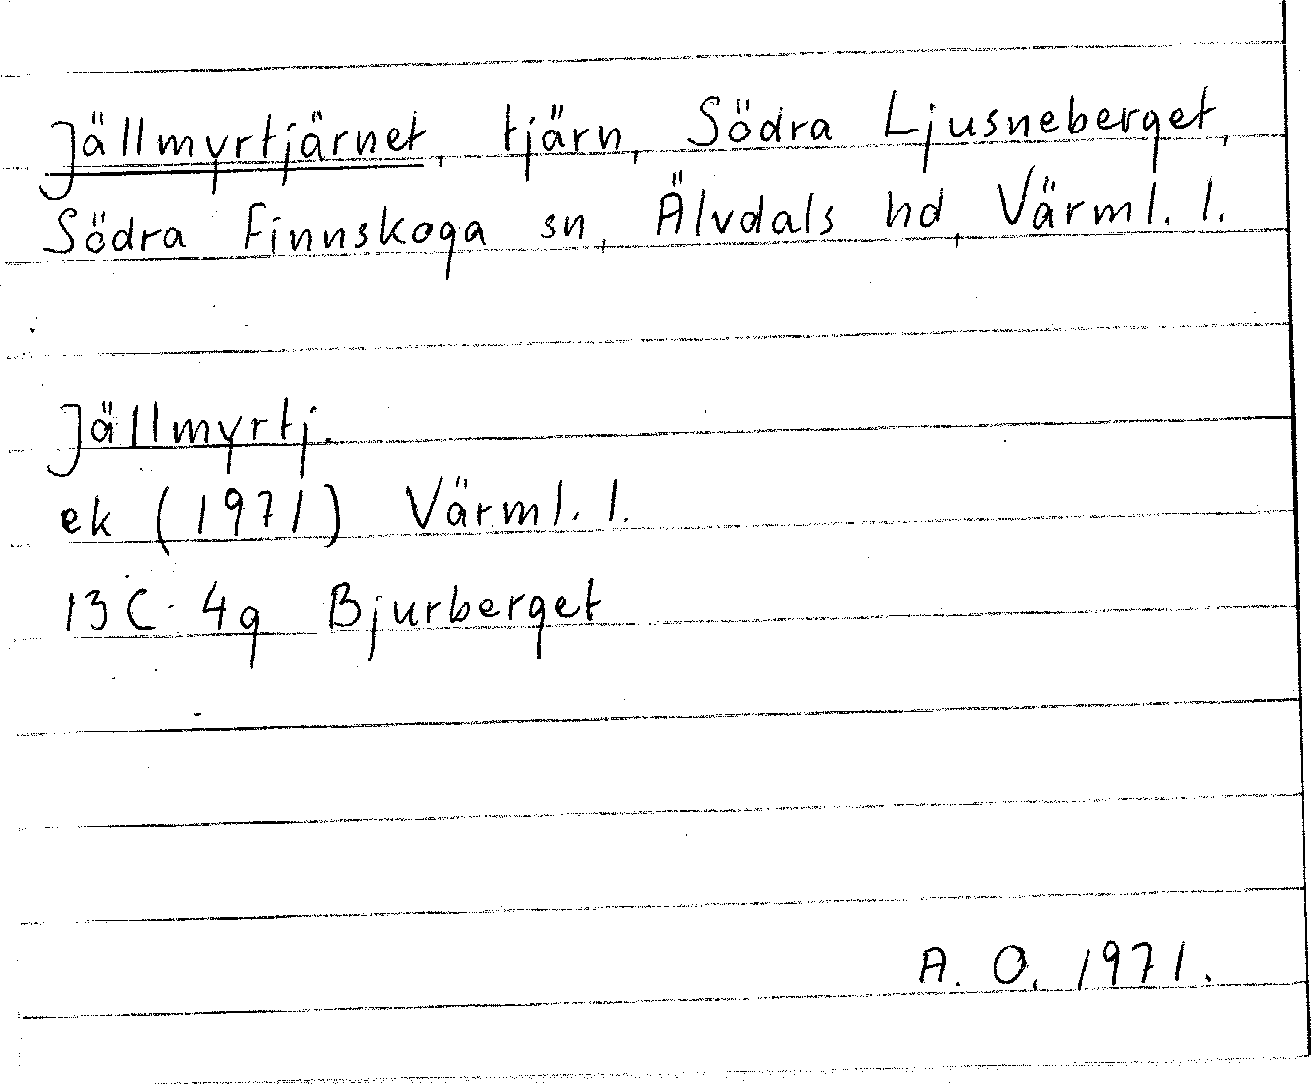 Jällmyrtjärnet, tjärn, Södra Ljusneberget,
Södra Finnskoga sn, Älvdals hd, Värml. l.
Jällmyrtj.
ek (1971) Värml. l.
13 C · 4g Bjurberget
A. O. 1971.